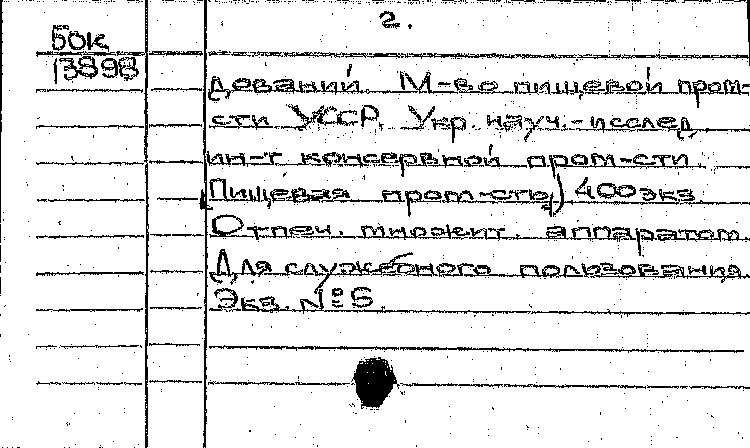 2.
Бок
13898
дований. М-во пищевой пром-
сти УССР, Укр. науч.-исслед.
ин-т консервной пром-сти.
Пищевая пром-сть) 400 экз.
Отпеч. множит. аппаратом.
Для служебного пользования.
Экз. №6.